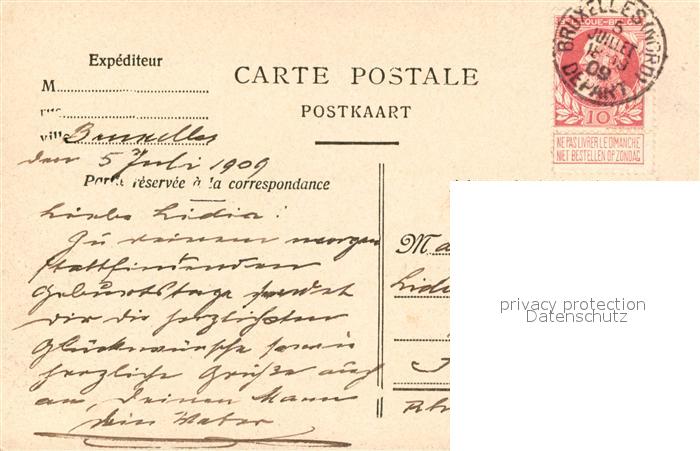 Expéditeur
M
rue
ville Bruxelles
den 5 Juli 1909
CARTE POSTALE
POSTKAART
BRUXELLES (NORD)
5
JUILLET
09
DEPART
10
NE PAS LIVRER LE DIMANCHE
NIET BESTELLEN OP ZONDAG
Partie réservée à la correspondance
Liebe Lidia!
Zu deinem morgen
stattfindenden
Geburtstage sendet
dir die herzlichsten
Glückwünsche sowie
herzliche Grüße auch
an Deinen Mann
dein Vater
Ma
Lid
privacy protection
Datenschutz